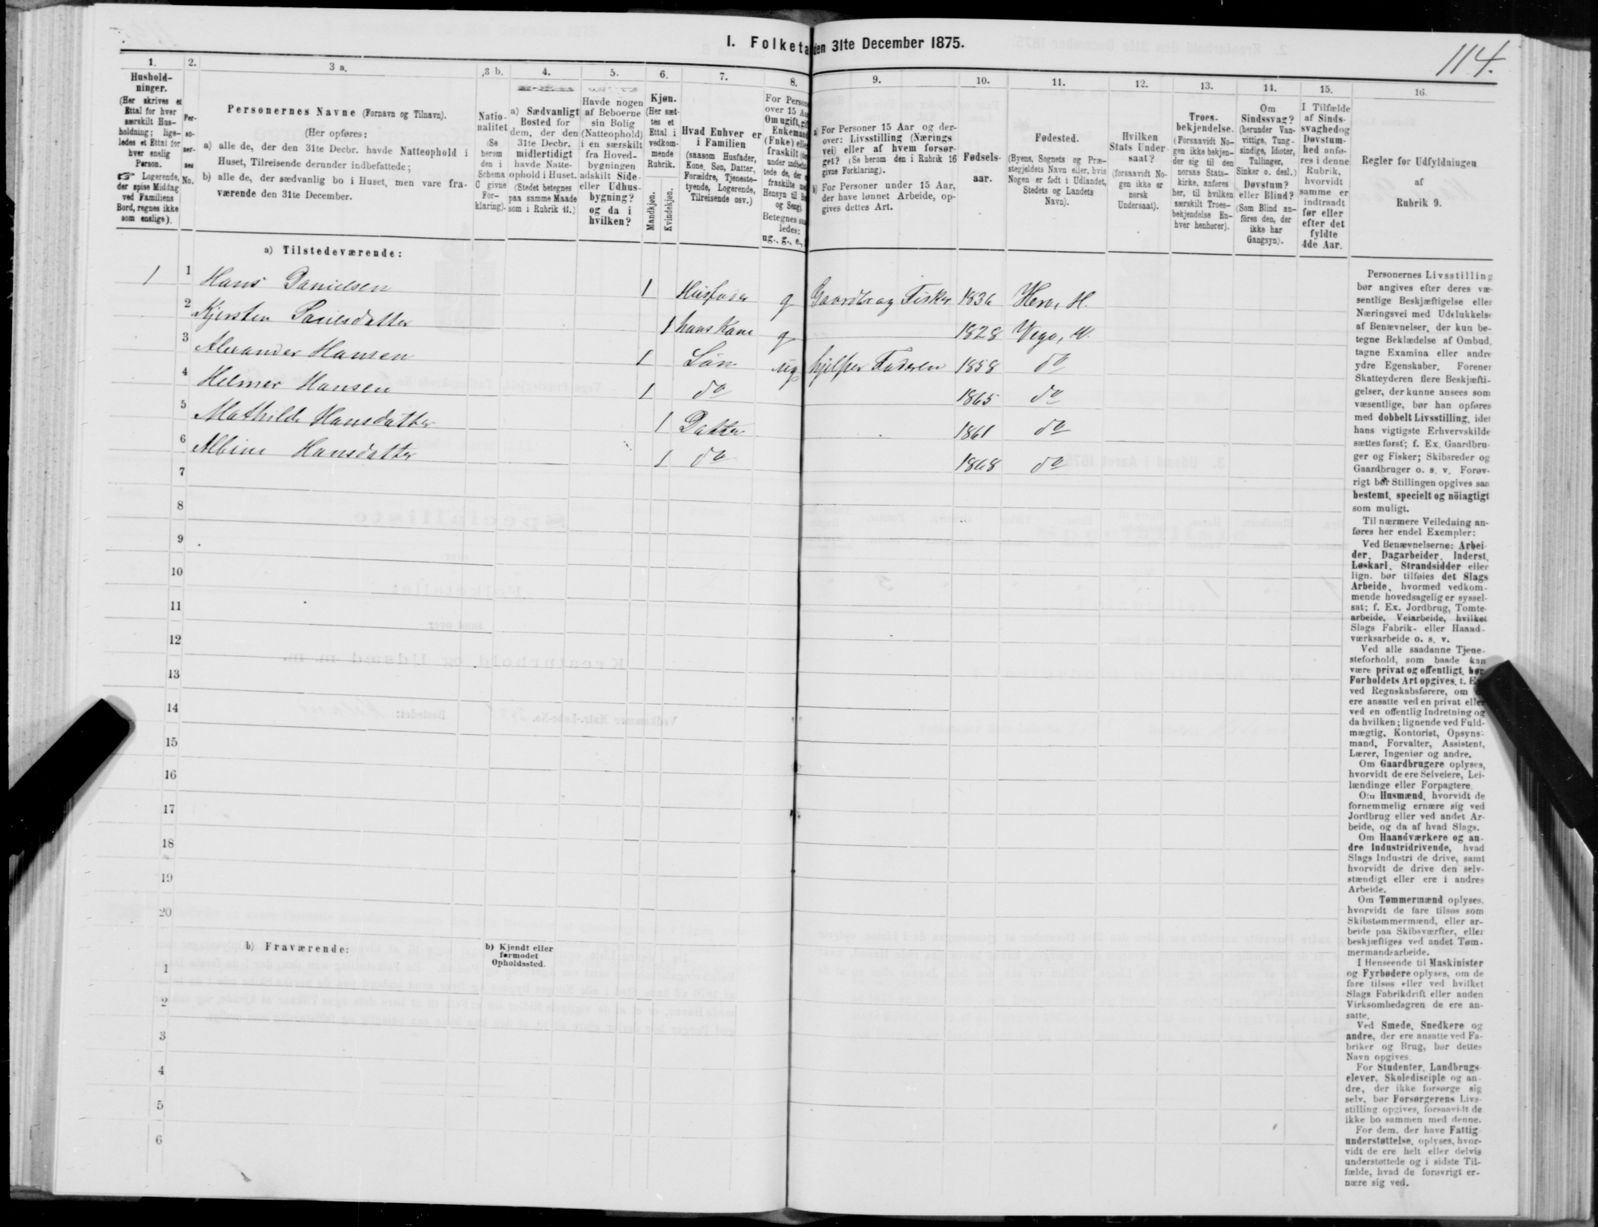 I. Folketal den 31te December 1875.
114.
1.
Hushold-
ninger.
(Her skrives et
Ettal for hver
særskilt Hus-
holdning; lige-
ledes et Ettal for
hver enslig
Person.
☞ Logerende,
der spise Middag
ved Familiens
Bord, regnes ikke
som enslige).
2.
Per-
so-
ner-
nes
No.
3 a.
Personernes Navne (Fornavn og Tilnavn).
(Her opføres:
a) alle de, der den 31te Decbr. havde Natteophold i
Huset, Tilreisende derunder indbefattede;
b) alle de, der sædvanlig bo i Huset, men vare fra-
værende den 31te December.
3 b.
Natio-
nalitet
(Se
herom
den i
Schema
C givne
For-
klaring).
4.
a) Sædvanligt
Bosted for
dem, der den
31te Decbr.
midlertidigt
havde Natte-
ophold i Huset.
(Stedet betegnes
paa samme Maade
som i Rubrik 11.)
5.
Havde nogen
af Beboerne
sin Bolig
(Natteophold)
i en særskilt
fra Hoved-
bygningen
adskilt Side-
eller Udhus-
bygning?
og da i
hvilken?
6.
Kjøn.
(Her sæt-
tes et
Ettal i
vedkom-
mende
Rubrik.
Mandkjøn.
Kvindekjøn.
7.
Hvad Enhver er
i Familien
(saasom Husfader,
Kone, Søn, Datter,
Forældre, Tjeneste-
tyende, Logerende,
Tilreisende osv.)
8.
For Personer
over 15 Aar
Om ugift, gift
Enkemand
(Enke) eller
fraskilt
Betegnes saa-
ledes:
ug., g., e.,
9.
a) For Personer 15 Aar og der-
over: Livsstilling (Nærings-
vei) eller af hvem forsør-
get? (Se herom den i Rubrik 16
givne Forklaring).
b) For Personer under 15 Aar,
der have lønnet Arbeide, op-
gives dettes Art.
10.
Fødsels-
aar.
11.
Fødested.
(Byens, Sognets og Præ-
stegjeldets Navn eller, hvis
Nogen er født i Udlandet,
Stedets og Landets
Navn).
12.
Hvilken
Stats Under-
saat?
(forsaavidt No-
gen ikke er
norsk
Undersaat).
13.
Troes-
bekjendelse.
(Forsaavidt No-
gen ikke bekjen-
der sig til den
norske Stats-
kirke, anføres
her, til hvilken
særskilt Troes-
bekjendelse En-
hver henhører).
14.
Om
Sindssvag?
(herunder Van-
vittige, Tung-
sindige, Idioter,
Tullinger,
Sinker o. desl.)
Døvstum?
eller Blind?
(Som Blind an-
føres den, der
ikke har
Gangsyn).
15.
I Tilfælde
af Sinds-
svaghed og
Døvstum-
hed anfø-
res i denne
Rubrik,
hvorvidt
samme er
indtraadt
før eller
efter det
fyldte
4de Aar.
16.
Regler for Udfyldningen
af
Rubrik 9.
a) Tilstedeværende:
1 1 Hans Danielsen 1 Husfader g Gaardbr og Fisker 1836 Herø, H.
2 Kjersten Paulsdatter 1 hans Kone g 1828 Vegø, H.
3 Alexander Hansen 1 Søn ug hjelper Faderen 1858 do
4 Helmer Hansen 1 do 1865 do
5 Mathilde Hansdatter 1 Datter 1861 do
6 Albine Hansdatter 1 do 1868 do
7
8
9
10
11
12
13
14
15
16
17
18
19
20
b) Fraværende:
b) Kjendt eller
formodet
Opholdssted.
1
2
3
4
5
6
Personernes Livsstilling
bør angives efter deres væ-
sentlige Beskjæftigelse eller
Næringsvei med Udelukkelse
af Benævnelser, der kun be-
tegne Beklædelse af Ombud,
tagne Examina eller andre
ydre Egenskaber. Forener
Skatteyderen flere Beskjæfti-
gelser, der kunne ansees som
væsentlige, bør han opføres
med dobbelt Livsstilling, idet
hans vigtigste Erhvervskilde
sættes først; f. Ex. Gaardbru-
ger og Fisker; Skibsreder og
Gaardbruger o. s. v. Forøv-
rigt bør Stillingen opgives saa
bestemt, specielt og nöiagtigt
som muligt.
Til nærmere Veiledning an-
føres her endel Exempler:
Ved Benævnelserne: Arbei-
der, Dagarbeider, Inderst,
Løskarl, Strandsidder eller
lign. bør tilføies det Slags
Arbeide, hvormed vedkom-
mende hovedsagelig er syssel-
sat; f. Ex. Jordbrug, Tomte-
arbeide, Veiarbeide, hvilket
Slags Fabrik- eller Haand-
værksarbeide o. s. v.
Ved alle saadanne Tjene-
steforhold, som baade kan
være privat og offentligt, bør
Forholdets Art opgives, t. Ex.
ved Regnskabsførere, om de
ere ansatte ved en privat eller
ved en offentlig Indretning og
da hvilken; lignende ved Fuld-
mægtig, Kontorist, Opsyns-
mand, Forvalter, Assistent,
Lærer, Ingeniør og andre.
Om Gaardbrugere oplyses,
hvorvidt de ere Selveiere, Lei-
lændinge eller Forpagtere.
Om Husmænd, hvorvidt de
fornemmelig ernære sig ved
Jordbrug eller ved andet Ar-
beide, og da af hvad Slags.
Om Haandværkere og an-
dre Industridrivende, hvad
Slags Industri de drive, samt
hvorvidt de drive den selv-
stændigt eller ere i andres
Arbeide.
Om Tømmermænd oplyses,
hvorvidt de fare tilsøs som
Skibstømmermænd, eller ar-
beide paa Skibsværfter, eller
beskjæftiges ved andet Tøm-
mermandsarbeide.
I Henseende til Maskinister
og Fyrbødere oplyses, om de
fare tilsøs eller ved hvilket
Slags Fabrikdrift eller anden
Virksomhedsgren de ere an-
satte.
Ved Smede, Snedkere og
andre, der ere ansatte ved Fa-
briker og Brug, bør dettes
Navn opgives.
For Studenter, Landbrugs-
elever, Skoledisciple og an-
dre, der ikke forsørge sig
selv, bør Forsørgerens Livs-
stilling opgives, forsaavidt de
ikke bo sammen med denne.
For dem, der have Fattig-
understøttelse, oplyses, hvor-
vidt de ere helt eller delvis
understøttede og i sidste Til-
fælde, hvad de forøvrigt er-
nære sig ved.